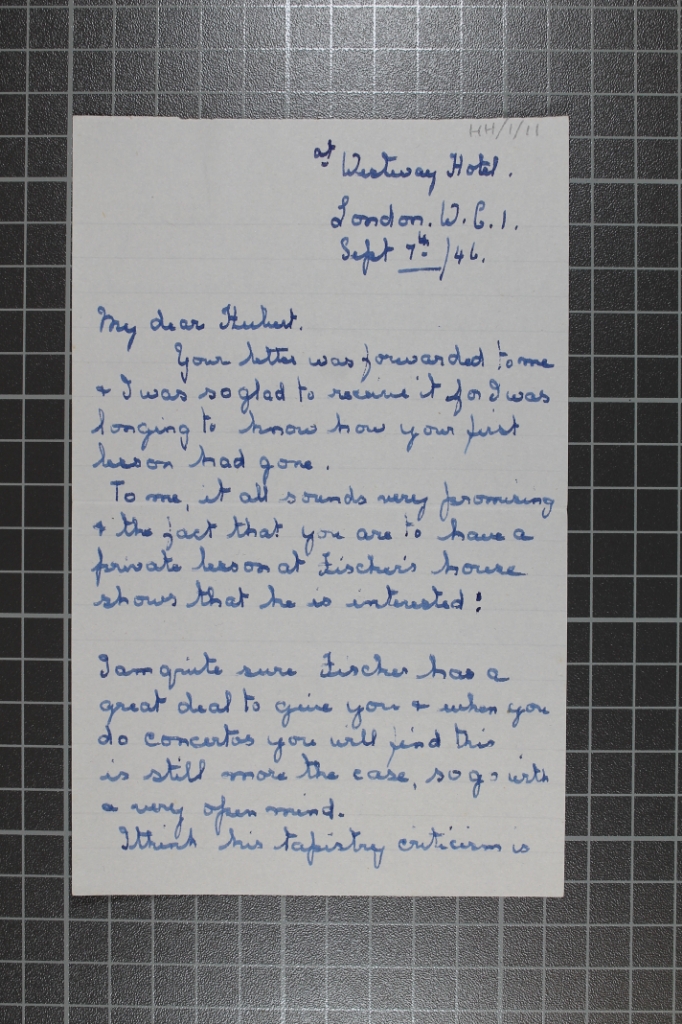 HH/1/11
at Westway Hotel.
London. W.C.1.
Sept 7th/46.
My dear Hubert.
Your letter was forwarded to me
& I was so glad to receive it for I was
longing to know how your first
lesson had gone.
To me, it all sounds very promising
& the fact that you are to have a
private lesson at Fischer's house
shows that he is interested!
I am quite sure Fischer has a
great deal to give you & when you
do concertos you will find this
is still more the case, so go with
a very open mind.
I think his tapistry criticism is